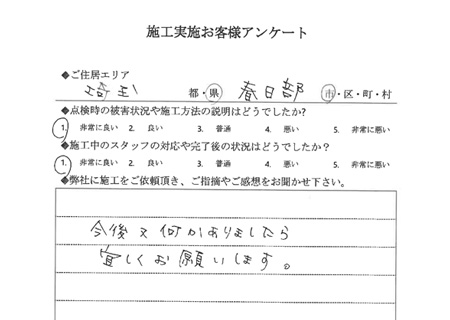 施工実施お客様アンケート
◆ご住居エリア
埼玉 都・県 春日部 市・区・町・村
◆点検時の被害状況や施工方法の説明はどうでしたか?
1. 非常に良い 2. 良い 3. 普通 4. 悪い 5. 非常に悪い
◆施工中のスタッフの対応や完了後の状況はどうでしたか?
1. 非常に良い 2. 良い 3. 普通 4. 悪い 5. 非常に悪い
◆弊社に施工をご依頼頂き、ご指摘やご感想をお聞かせ下さい。
今後又何かありましたら
宜しくお願いします。